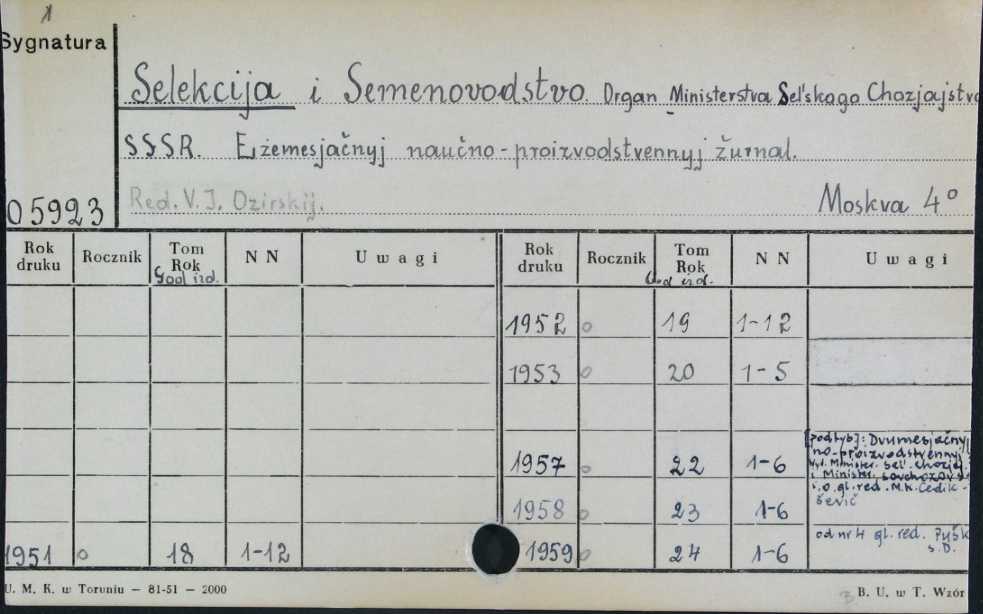 1
Sygnatura
Selekcija i Semenovodstvo. Organ Ministerstva Sel'skogo Chozjajstva
SSSR. Eżemesjačnyj naučno-proizvodstvennyj žurnal.
05923 Red. V. I. Ozirskij. Moskva 4°
Rok druku Rocznik Tom Rok God izd. N N Uwagi Rok druku Rocznik Tom Rok God izd. N N Uwagi
1952 o 19 1-12
1953 o 20 1-5
1957 o 22 1-6 [podtyt]: Dvumesjačnyj
no-proizvodstvennyj
Minister. sel. chozja
i Minister. sovchozov
i.o. gl. red. M.K. Čedik-
ševič
1958 o 23 1-6
1951 o 18 1-12 1959 o 24 1-6 od nr 4 gl. red.
S.D.
U. M. K. w Toruniu — 81-51 — 2000 3 B. U. w T. Wzór